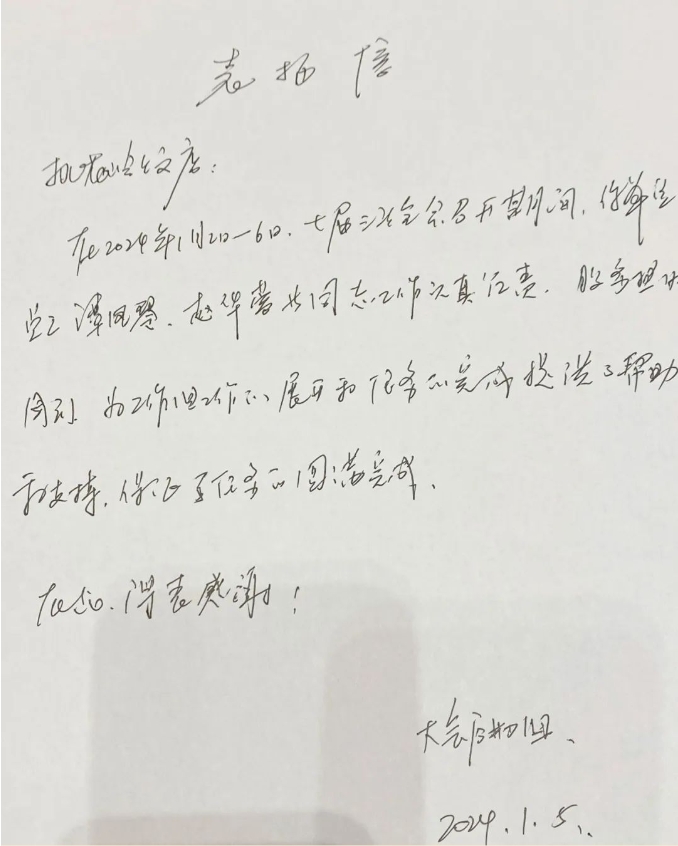 表扬信
酒店：
在2024年1月2日—6日，七届三次全会召开期间，你单位
员工谭凤琴、赵华蓉共同志工作认真负责，服务理
周到，为工作组工作的展开和任务的完成提供了帮助
和支持，保证了任务的圆满完成、
在此，谨表感谢！
大会后勤组、
2024.1.5、